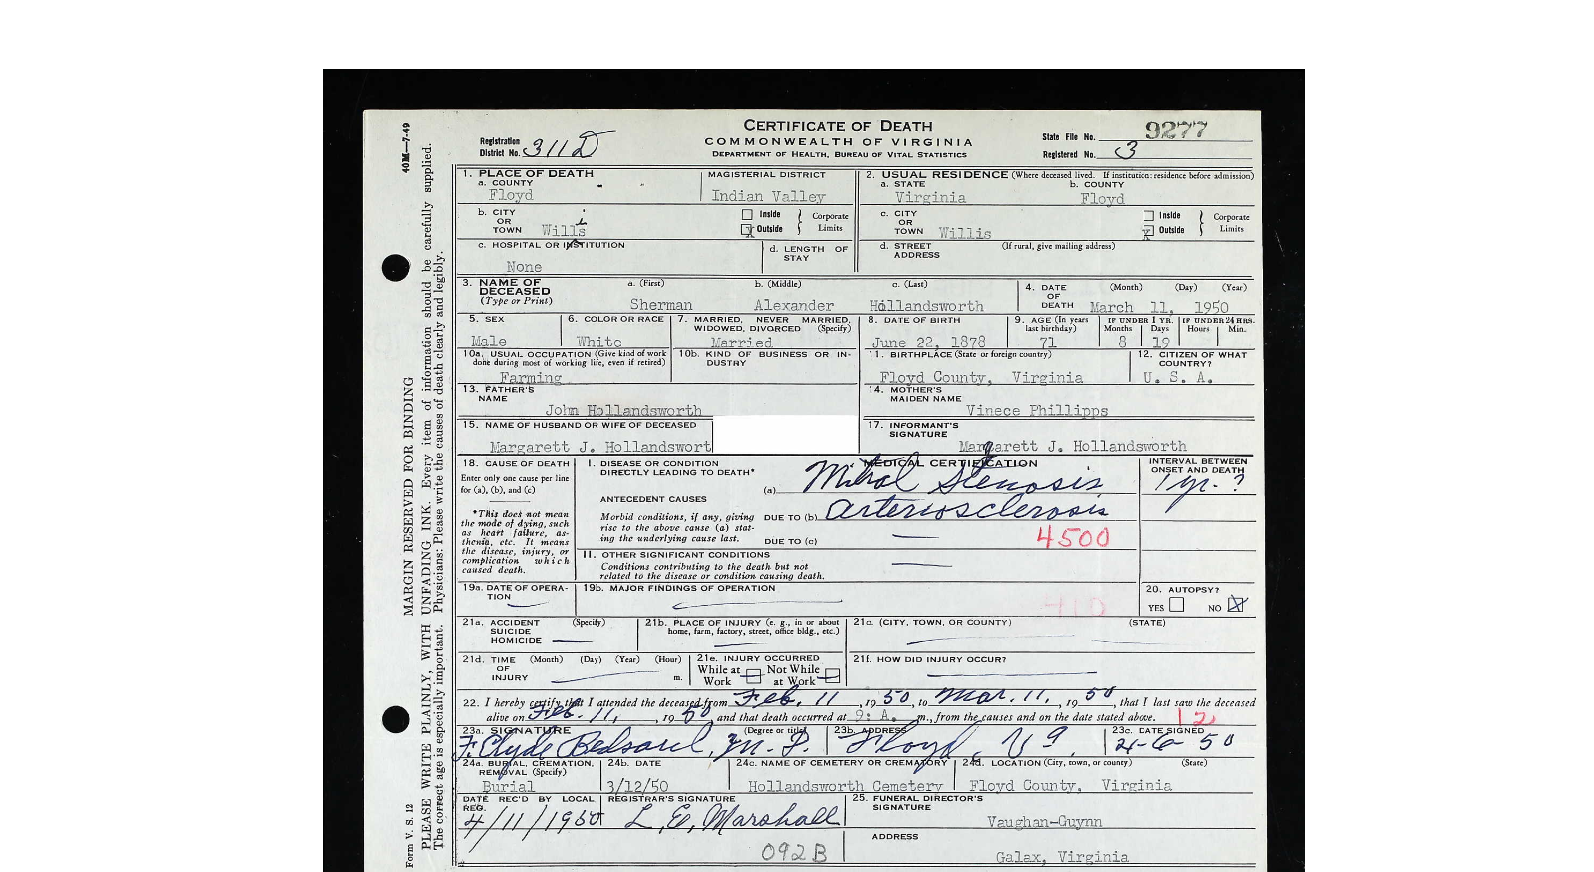 CERTIFICATE OF DEATH
COMMONWEALTH OF VIRGINIA
DEPARTMENT OF HEALTH, BUREAU OF VITAL STATISTICS
Registration District No. 311D
State File No. 9277
Registered No. 3
40M—7-49
MARGIN RESERVED FOR BINDING
PLEASE WRITE PLAINLY, WITH UNFADING INK. Every item of information should be carefully supplied.
The correct age is especially important. Physicians: Please write the causes of death clearly and legibly.
Form V. S. 12
1. PLACE OF DEATH
a. COUNTY
Floyd
MAGISTERIAL DISTRICT
Indian Valley
2. USUAL RESIDENCE (Where deceased lived. If institution: residence before admission)
a. STATE
Virginia
b. COUNTY
Floyd
b. CITY OR TOWN Wills
Inside
Outside
Corporate Limits
c. CITY OR TOWN Willis
Inside
Outside
Corporate Limits
c. HOSPITAL OR INSTITUTION
None
d. LENGTH OF STAY
d. STREET ADDRESS
(If rural, give mailing address)
3. NAME OF DECEASED
(Type or Print)
a. (First)
Sherman
b. (Middle)
Alexander
c. (Last)
Hollandsworth
4. DATE OF DEATH
(Month) (Day) (Year)
March 11, 1950
5. SEX
Male
6. COLOR OR RACE
White
7. MARRIED, NEVER MARRIED, WIDOWED, DIVORCED (Specify)
Married
8. DATE OF BIRTH
June 22, 1878
9. AGE (In years last birthday)
71
IF UNDER 1 YR.
Months Days
8 19
IF UNDER 24 HRS.
Hours Min.
10a. USUAL OCCUPATION (Give kind of work done during most of working life, even if retired)
Farming
10b. KIND OF BUSINESS OR INDUSTRY
1. BIRTHPLACE (State or foreign country)
Floyd County, Virginia
12. CITIZEN OF WHAT COUNTRY?
U. S. A.
13. FATHER'S NAME
John Hollandsworth
4. MOTHER'S MAIDEN NAME
Vinece Phillipps
15. NAME OF HUSBAND OR WIFE OF DECEASED
Margarett J. Hollandswort
17. INFORMANT'S SIGNATURE
Margarett J. Hollandsworth
18. CAUSE OF DEATH
Enter only one cause per line for (a), (b), and (c)
*This does not mean the mode of dying, such as heart failure, asthenia, etc. It means the disease, injury, or complication which caused death.
MEDICAL CERTIFICATION
I. DISEASE OR CONDITION DIRECTLY LEADING TO DEATH*
(a) Mitral Stenosis
INTERVAL BETWEEN ONSET AND DEATH
1 yr. ?
ANTECEDENT CAUSES
Morbid conditions, if any, giving rise to the above cause (a) stating the underlying cause last.
DUE TO (b) Arteriosclerosis
DUE TO (c)
4500
II. OTHER SIGNIFICANT CONDITIONS
Conditions contributing to the death but not related to the disease or condition causing death.
19a. DATE OF OPERATION
19b. MAJOR FINDINGS OF OPERATION
410
20. AUTOPSY?
YES NO X
21a. ACCIDENT SUICIDE HOMICIDE (Specify)
21b. PLACE OF INJURY (e. g., in or about home, farm, factory, street, office bldg., etc.)
21c. (CITY, TOWN, OR COUNTY) (STATE)
21d. TIME OF INJURY (Month) (Day) (Year) (Hour) m.
21e. INJURY OCCURRED
While at Work Not While at Work
21f. HOW DID INJURY OCCUR?
22. I hereby certify that I attended the deceased from Feb. 11, 1950, to Mar. 11, 1950, that I last saw the deceased
alive on Feb. 11, 1950 and that death occurred at 9: A. m., from the causes and on the date stated above. 12
23a. SIGNATURE (Degree or title)
F. Clyde Bedsaul, M. D.
23b. ADDRESS
Floyd, Va.
23c. DATE SIGNED
4-6-50
24a. BURIAL, CREMATION, REMOVAL (Specify)
Burial
24b. DATE
3/12/50
24c. NAME OF CEMETERY OR CREMATORY
Hollandsworth Cemetery
24d. LOCATION (City, town, or county) (State)
Floyd County, Virginia
DATE REC'D BY LOCAL REG.
4/11/1950
REGISTRAR'S SIGNATURE
L. E. Marshall
25. FUNERAL DIRECTOR'S SIGNATURE
Vaughan-Guynn
ADDRESS
Galax, Virginia
092B